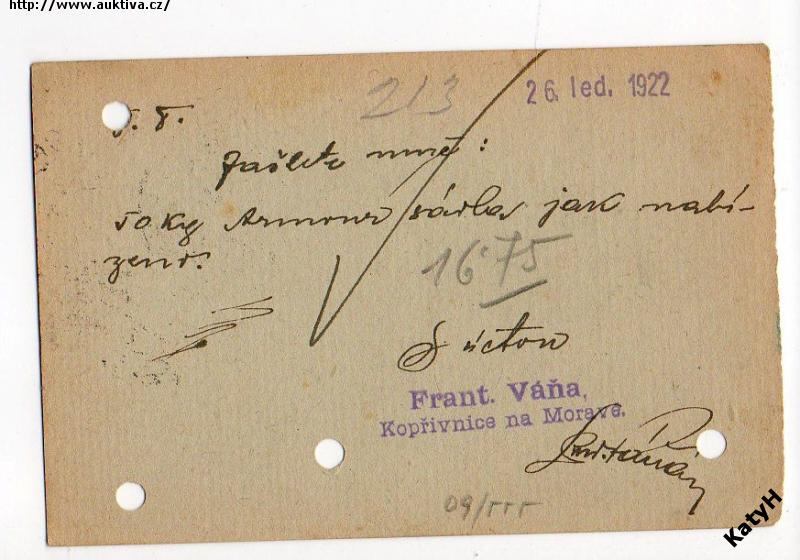 http://www.auktiva.cz/
26. led. 1922
213
Zašlete mně:
50 kg Armour sádla jak nabí-
zeno.
16·75
S úctou
Frant. Váňa,
Kopřivnice na Moravě.
09/
KatyH